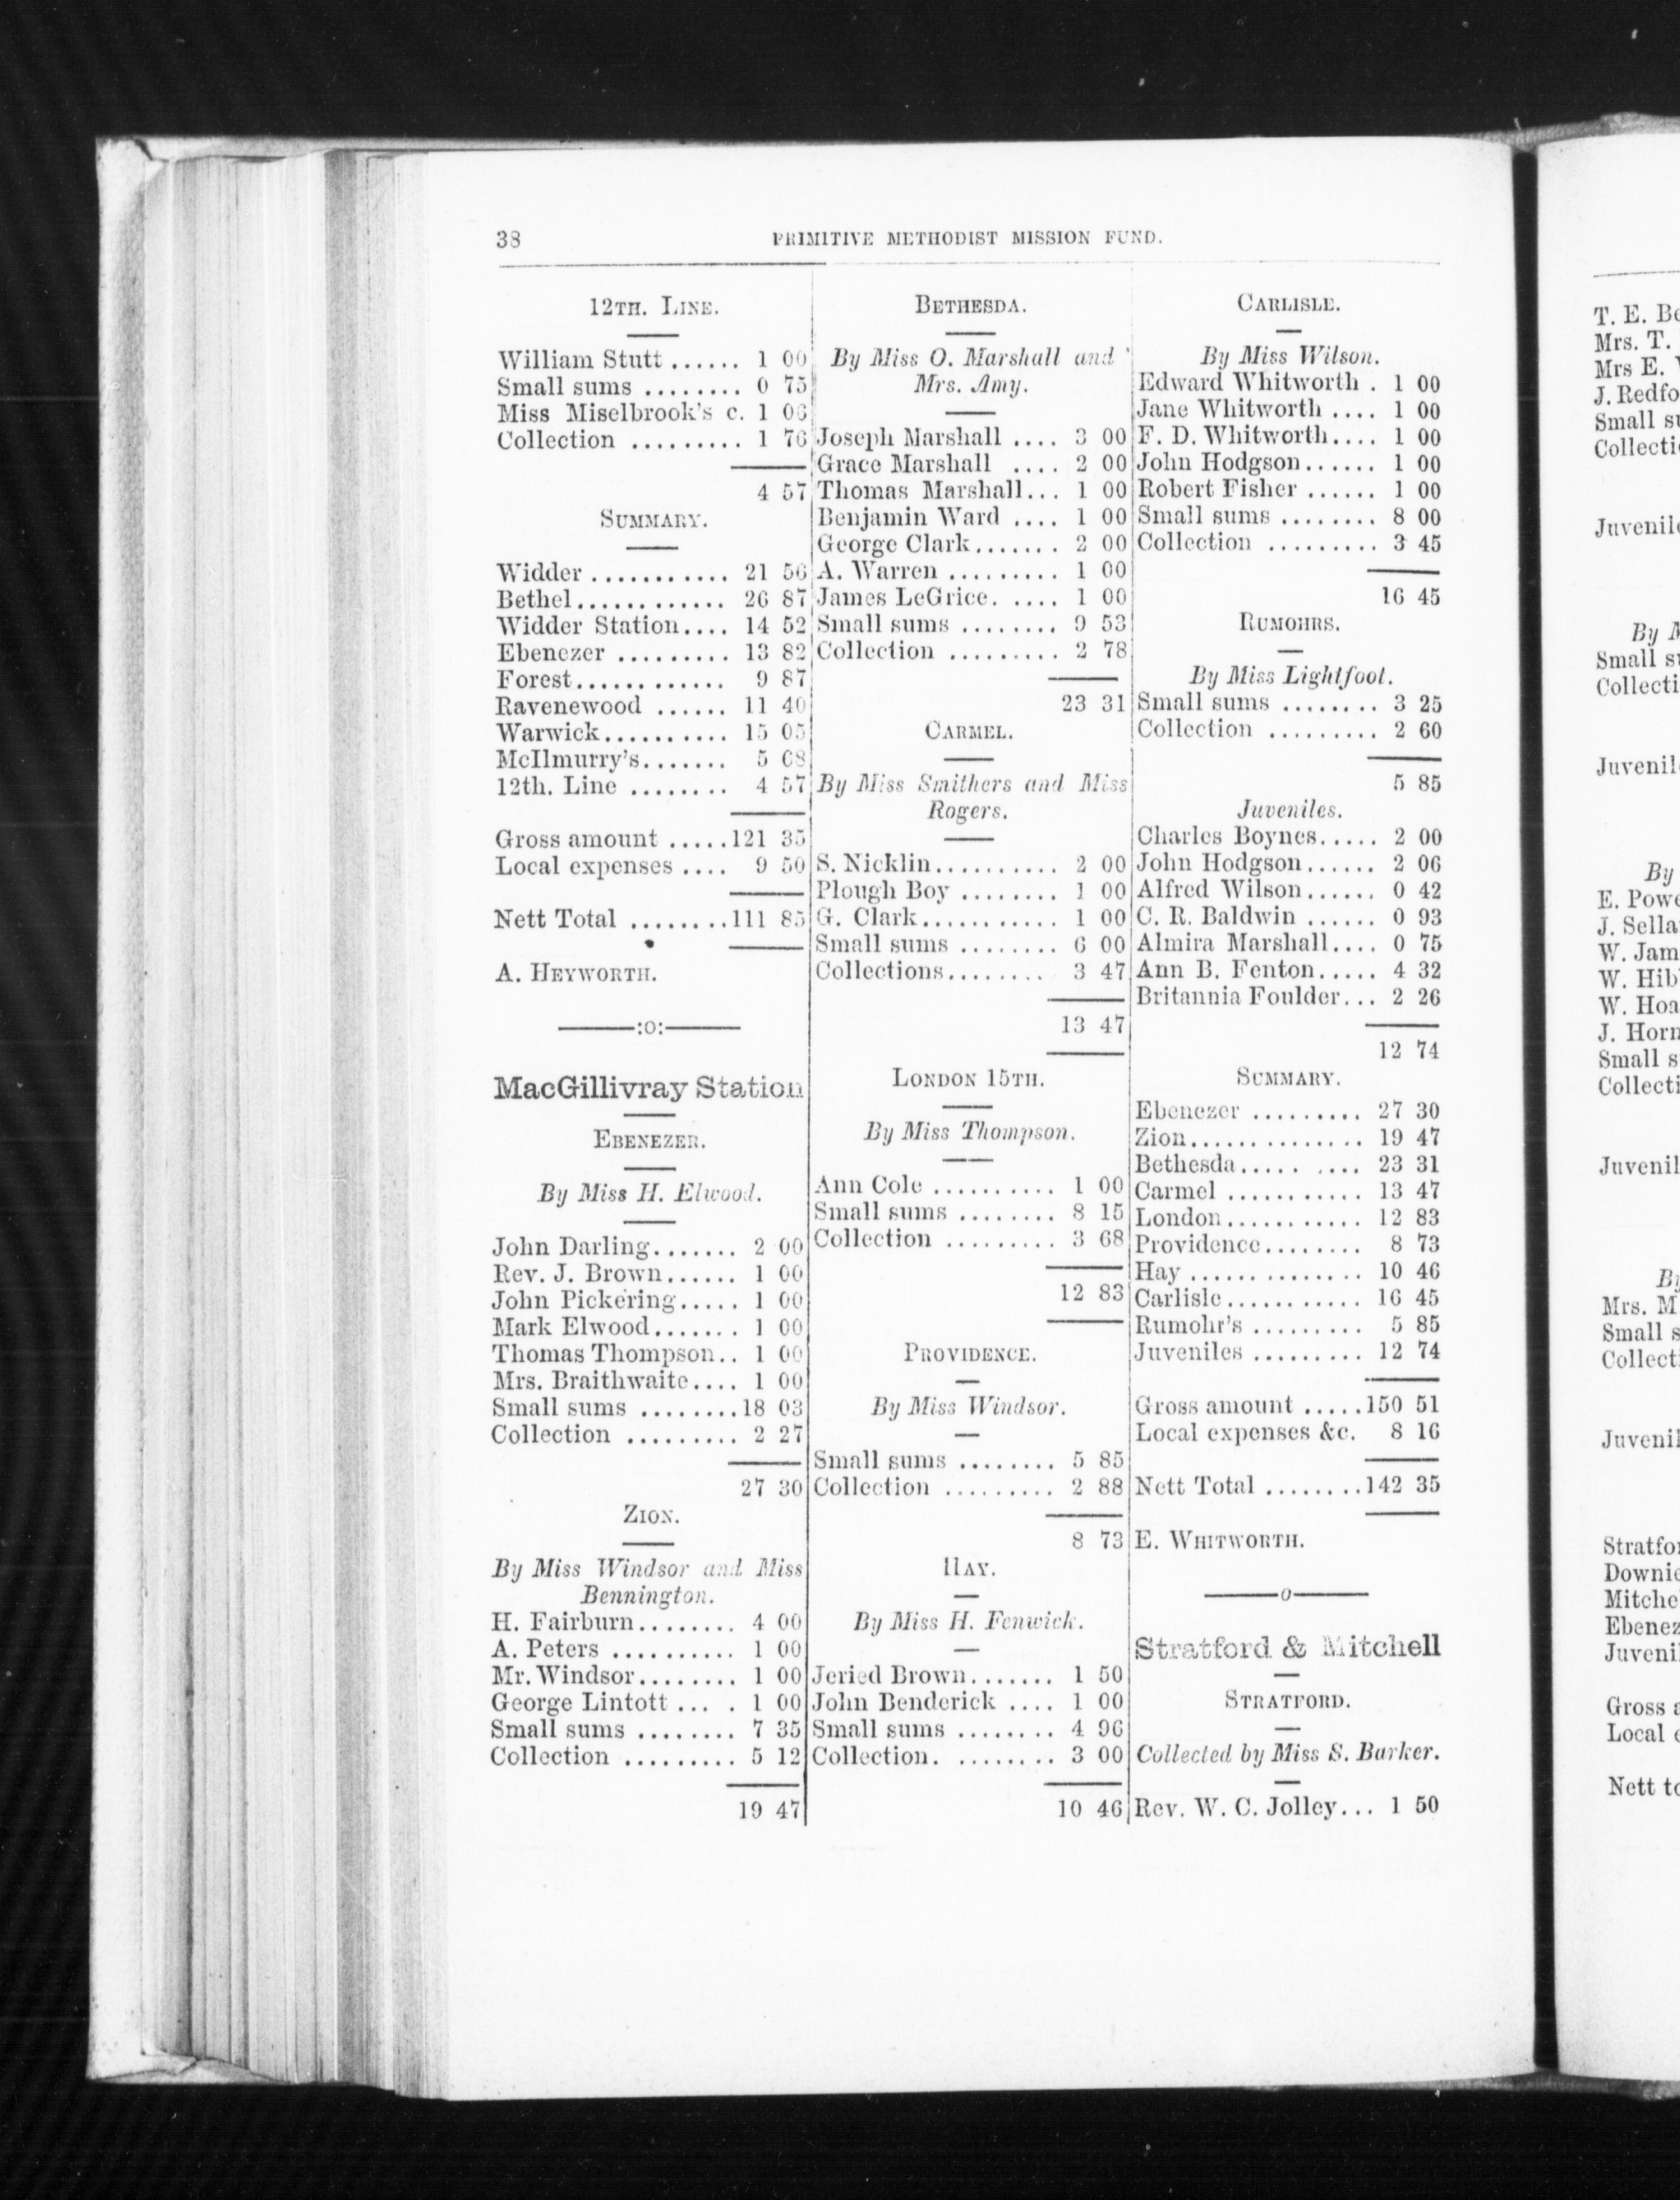 38
PRIMITIVE METHODIST MISSION FUND.
12TH. LINE.
William Stutt ...... 1 00
Small sums ........ 0 75
Miss Miselbrook's c. 1 06
Collection ......... 1 76
4 57
SUMMARY.
Widder ........... 21 56
Bethel............ 26 87
Widder Station.... 14 52
Ebenezer ......... 13 82
Forest............ 9 87
Ravenewood ...... 11 40
Warwick.......... 15 05
McIlmurry's....... 5 68
12th. Line ........ 4 57
Gross amount .....121 35
Local expenses .... 9 50
Nett Total ........111 85
A. HEYWORTH.
:o:
MacGillivray Station
EBENEZER.
By Miss H. Elwood.
John Darling....... 2 00
Rev. J. Brown...... 1 00
John Pickering..... 1 00
Mark Elwood....... 1 00
Thomas Thompson.. 1 00
Mrs. Braithwaite.... 1 00
Small sums ........18 03
Collection ......... 2 27
27 30
ZION.
By Miss Windsor and Miss
Bennington.
H. Fairburn........ 4 00
A. Peters .......... 1 00
Mr. Windsor........ 1 00
George Lintott ... . 1 00
Small sums ........ 7 35
Collection ......... 5 12
19 47
BETHESDA.
By Miss O. Marshall and
Mrs. Amy.
Joseph Marshall .... 3 00
Grace Marshall .... 2 00
Thomas Marshall... 1 00
Benjamin Ward .... 1 00
George Clark....... 2 00
A. Warren ......... 1 00
James LeGrice. .... 1 00
Small sums ........ 9 53
Collection ......... 2 78
23 31
CARMEL.
By Miss Smithers and Miss
Rogers.
S. Nicklin.......... 2 00
Plough Boy ........ 1 00
G. Clark........... 1 00
Small sums ........ 6 00
Collections........ 3 47
13 47
LONDON 15TH.
By Miss Thompson.
Ann Cole .......... 1 00
Small sums ........ 8 15
Collection ......... 3 68
12 83
PROVIDENCE.
By Miss Windsor.
Small sums ........ 5 85
Collection ......... 2 88
8 73
HAY.
By Miss H. Fenwick.
Jeried Brown....... 1 50
John Benderick .... 1 00
Small sums ........ 4 96
Collection. ........ 3 00
10 46
CARLISLE.
By Miss Wilson.
Edward Whitworth . 1 00
Jane Whitworth .... 1 00
F. D. Whitworth.... 1 00
John Hodgson...... 1 00
Robert Fisher ...... 1 00
Small sums ........ 8 00
Collection ......... 3 45
16 45
RUMOHRS.
By Miss Lightfoot.
Small sums ........ 3 25
Collection ......... 2 60
5 85
Juveniles.
Charles Boynes..... 2 00
John Hodgson...... 2 06
Alfred Wilson...... 0 42
C. R. Baldwin ...... 0 93
Almira Marshall.... 0 75
Ann B. Fenton..... 4 32
Britannia Foulder... 2 26
12 74
SUMMARY.
Ebenezer ......... 27 30
Zion.............. 19 47
Bethesda..... .... 23 31
Carmel ........... 13 47
London........... 12 83
Providence........ 8 73
Hay .............. 10 46
Carlisle........... 16 45
Rumohr's ......... 5 85
Juveniles ......... 12 74
Gross amount .....150 51
Local expenses &c. 8 16
Nett Total ........142 35
E. WHITWORTH.
o
Stratford & Mitchell
STRATFORD.
Collected by Miss S. Barker.
Rev. W. C. Jolley... 1 50
T. E. Be
Mrs. T.
Mrs E.
J. Redfo
Small su
Collecti
Juvenile
By M
Small su
Collecti
Juvenil
By
E. Powe
J. Sella
W. Jam
W. Hib
W. Hoa
J. Horn
Small s
Collecti
Juvenil
By
Mrs. M
Small s
Collect
Juvenil
Stratfor
Downie
Mitche
Ebenez
Juveni
Gross a
Local e
Nett to